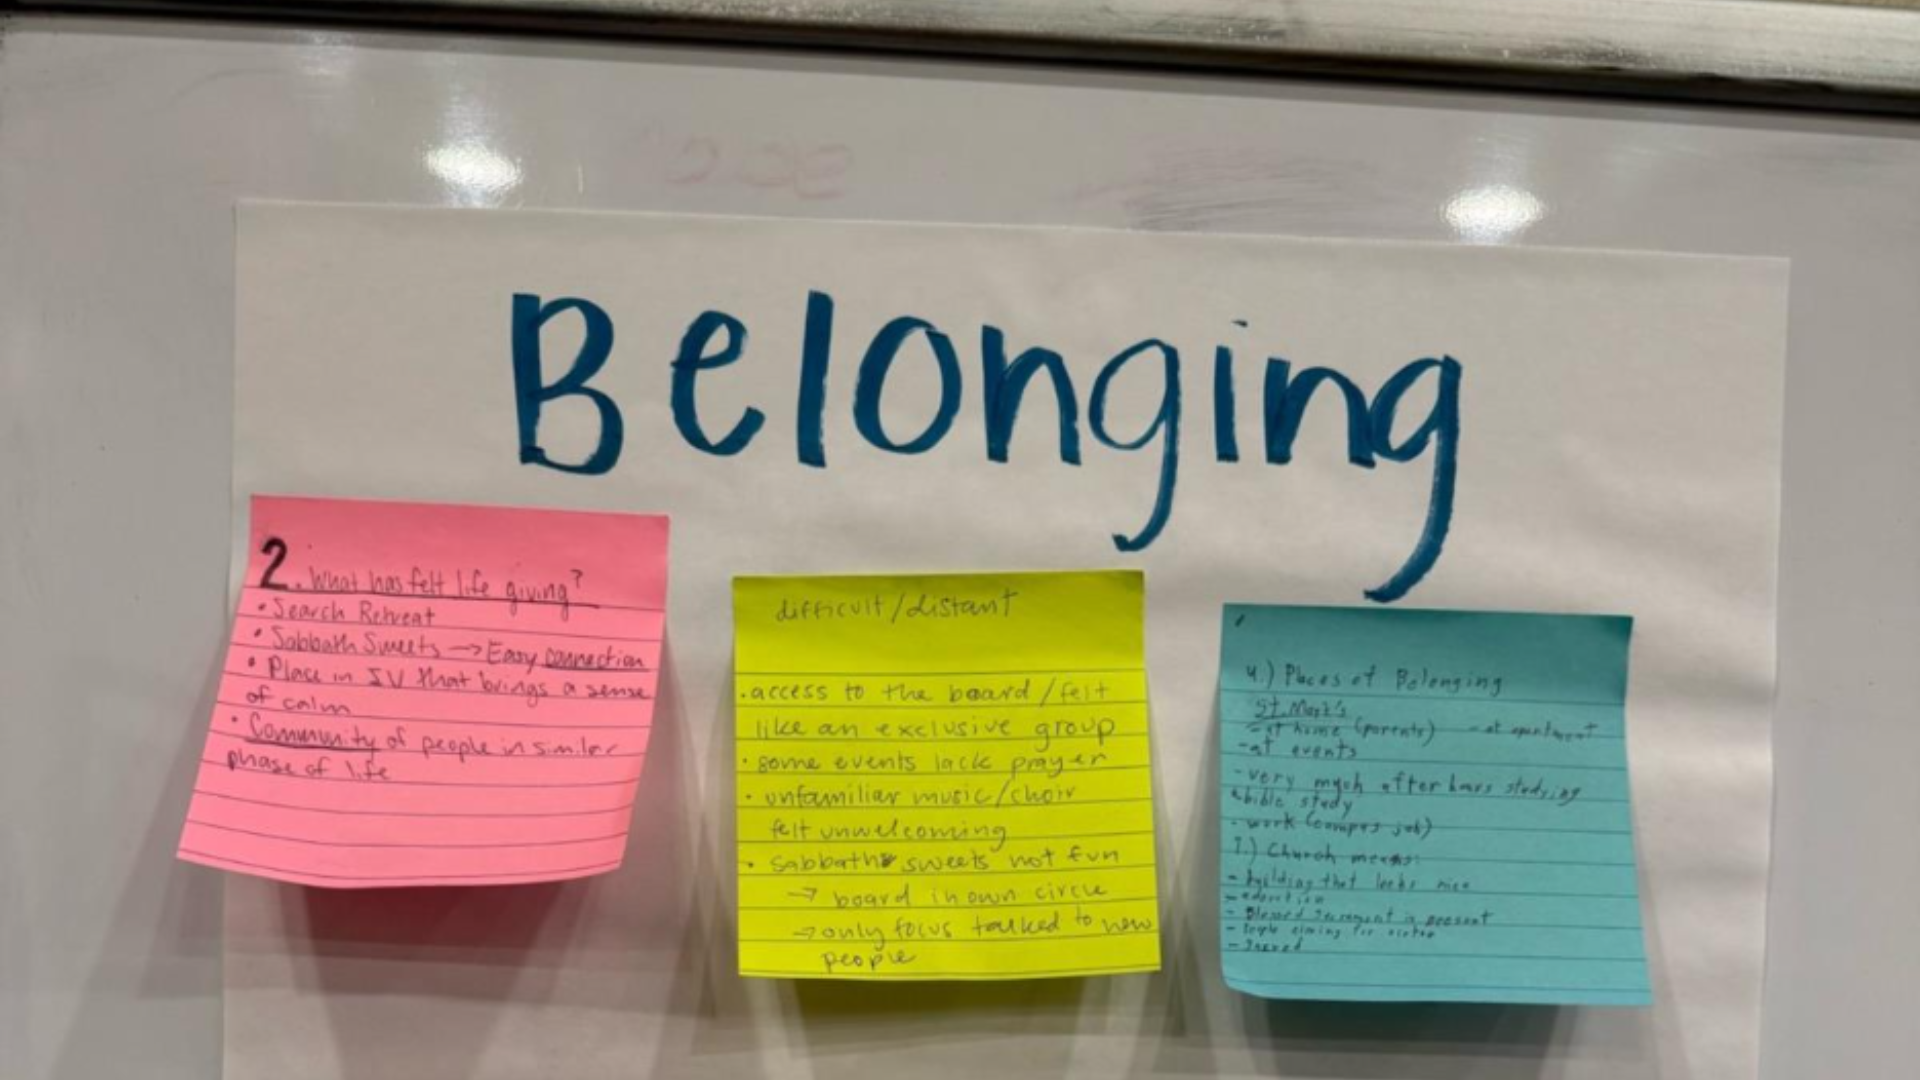 Belonging
2. What has felt life giving?
• Search Retreat
• Sabbath Sweets → Easy connection
• Place in IV that brings a sense
of calm
• Community of people in similar
phase of life
difficult/distant
• access to the board/felt
like an exclusive group
• some events lack prayer
• unfamiliar music/choir
felt unwelcoming
• sabbath sweets not fun
→ board in own circle
→ only focus talked to new
people
4.) Places of Belonging
St. Mark's
- at home (parents) - at apartment
- at events
- very much after hours studying
• bible study
- work (campus job)
1.) Church means:
- building that looks nice
- adoration
- Blessed Sacrament is present
- People aiming for
- Sacred